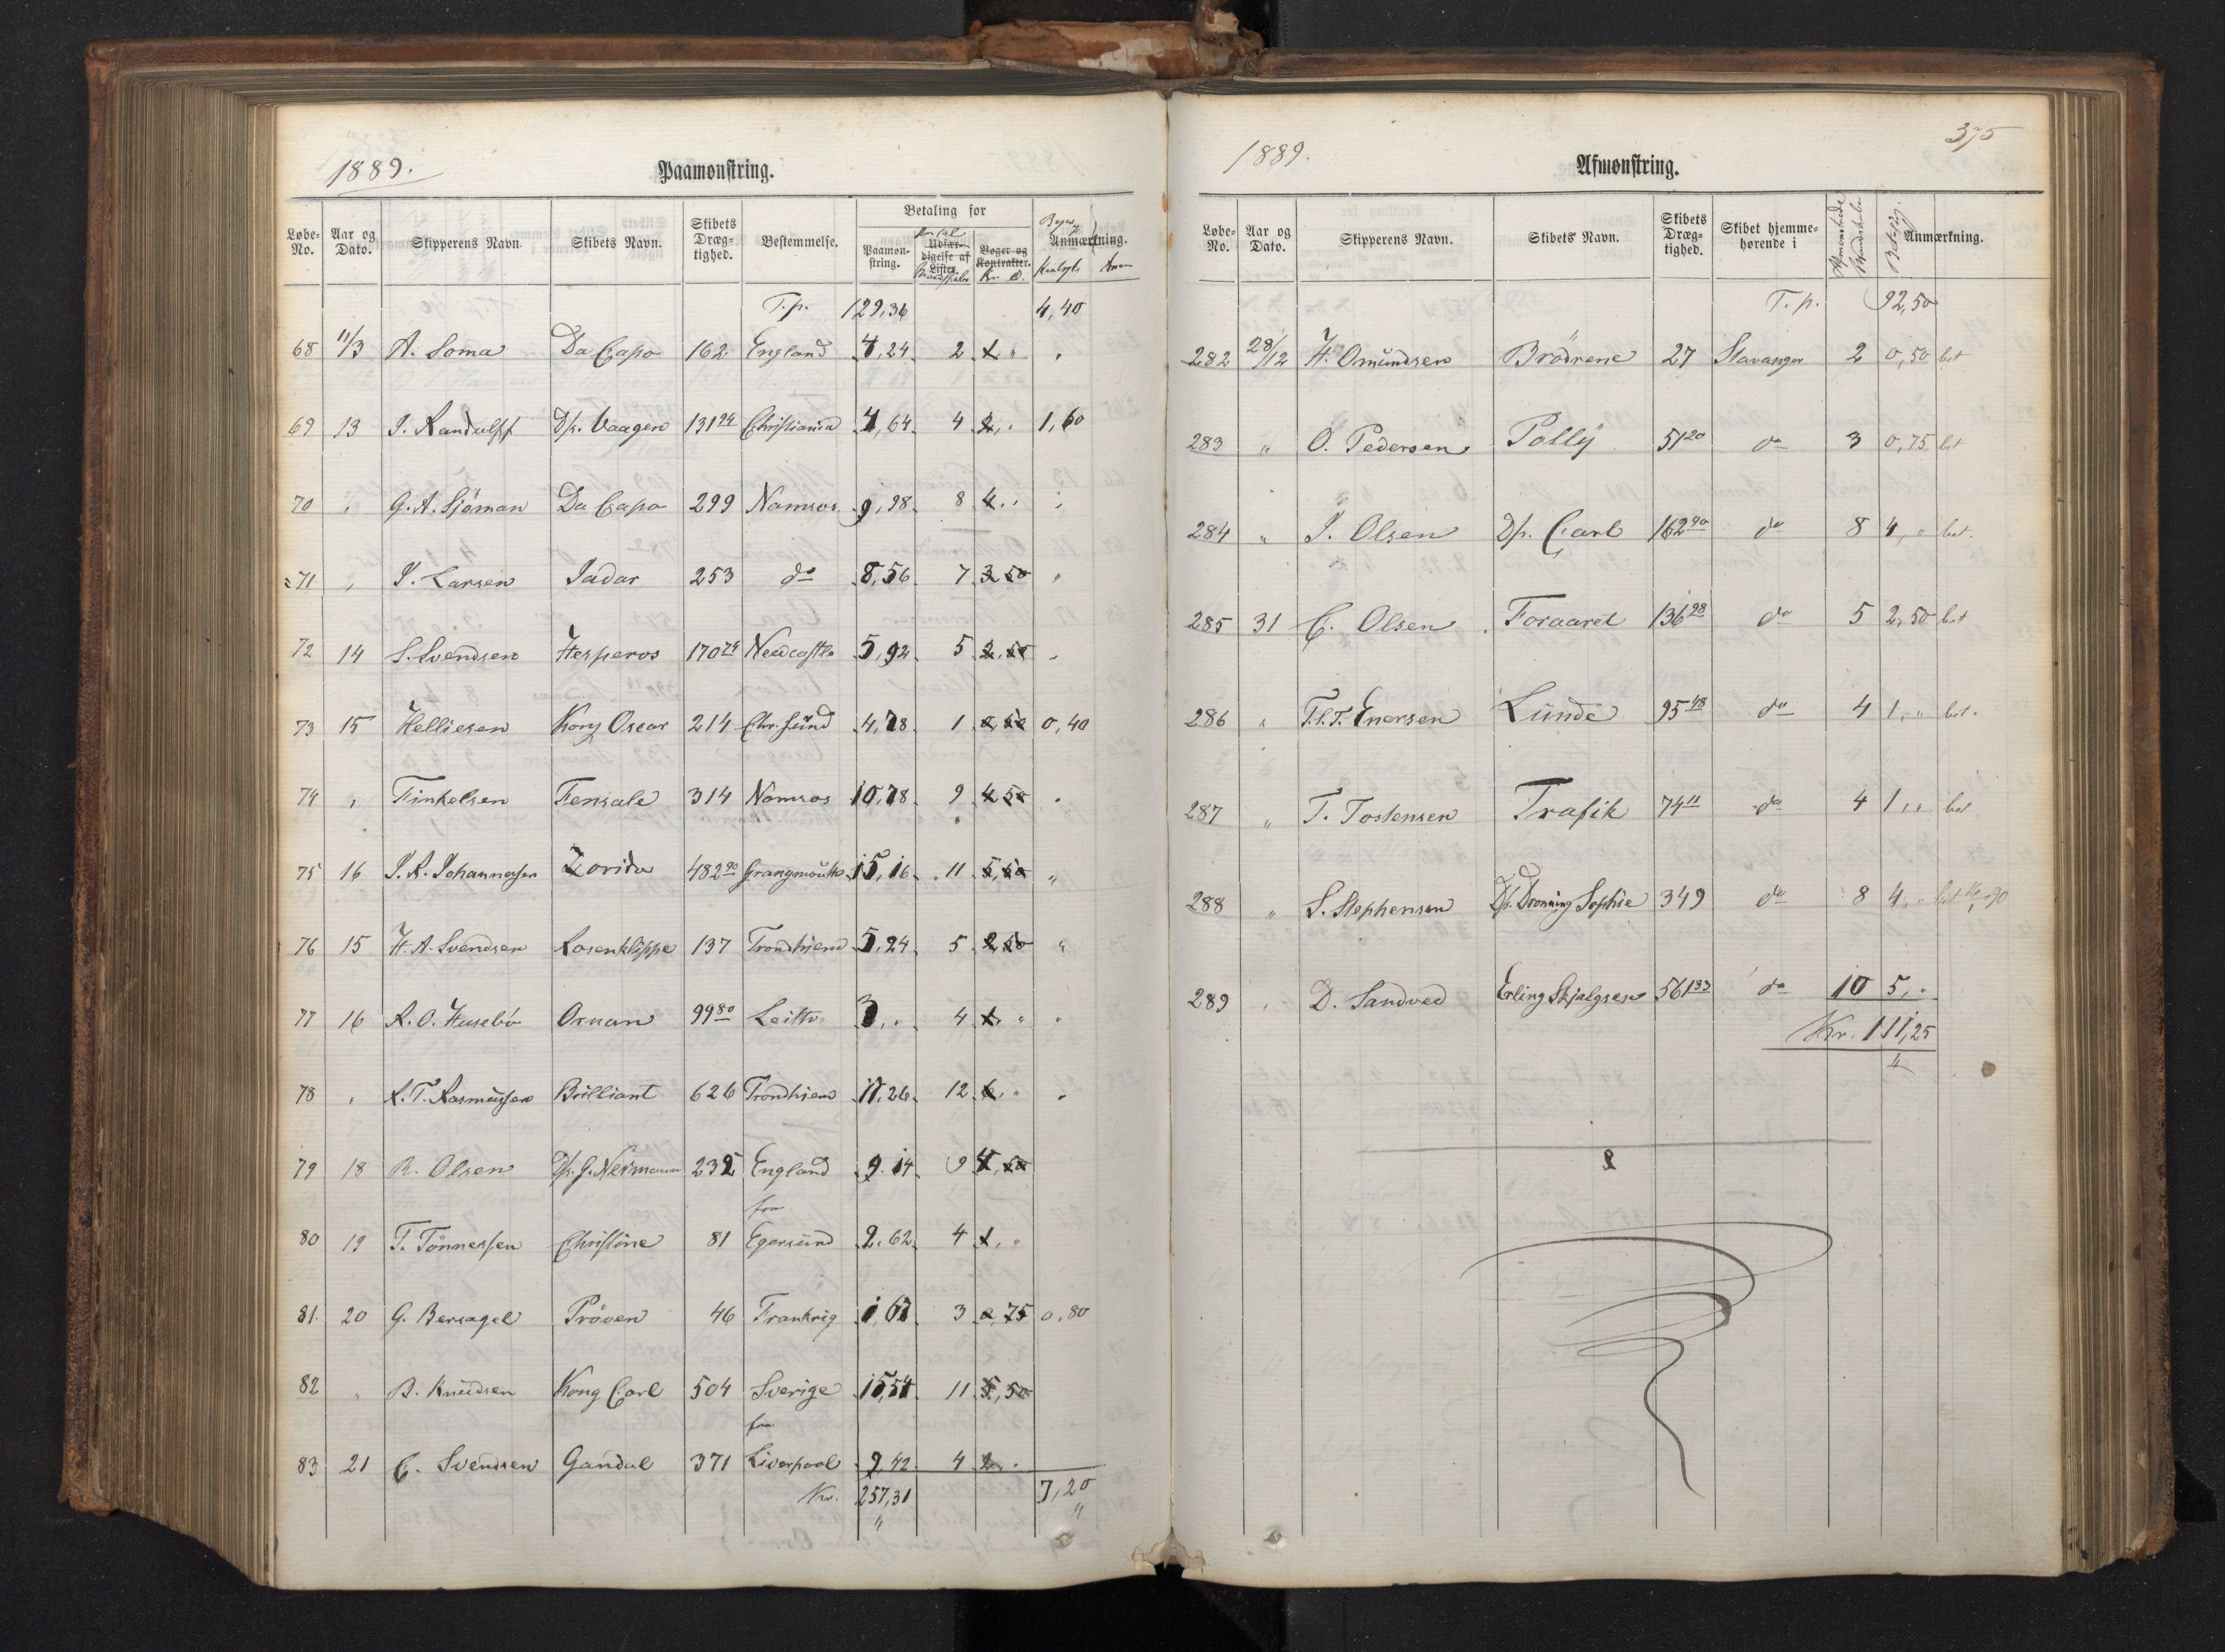 1889.
Paamønstring.
Løbe-No. Aar og Dato. Skipperens Navn. Skibets Navn. Skibets Dræg-tighed. Bestemmelse. Betaling for Paamøn-string. Antal Udfær-digelse af Lister. Bøger og Kontrakter. Kr Ø. Anmærkning.
T.p. 129,36 4,40
68 11/3 A. Soma Da Capo 162 England 4,24 2 1 "
69 13 J. Randulff D/s. Vaagen 131 94 Christiania 4,64 4 2, " 1,60
70 " G. A. Sjöman Da Capo 299 Namsos 9,98 8 4 "
71 " J. Larsen Jadar 253 do 8,56 7 3 50 "
72 14 S. Svendsen Hesperos 170 74 Newcastle 5,92 5 2,50 "
73 15 Helliesen Kong Oscar 214 Chr. sund 4,78 1 0,50 0,40
74 " Finkelsen Fensale 314 Namsos 10,78 9 4 50 "
75 16 J. R. Johannessen Zorida 482 90 Grangmouth 15,16 11 5,50 "
76 15 H. A. Svendsen Rosenklippe 137 Trondhjem 5,24 5 2,50 "
77 16 R. O. Husebö Ornan 99 80 Leith 3, " 4 1, " "
78 " R. T. Rasmussen Brilliant 626 Trondhjem 17,26 12 6, " "
79 18 R. Olsen D/s. G. Nermann 232 England 9.14 9 4,50
80 19 T. Tönnessen Christine 81 fra Egersund 2.62 4 1, "
81. 20 G. Bersagel Pröven 46 Frankrig 1,67 3 0,75 0,80
82 " B. Knudsen Kong Carl 504 Sverige 15,54 11 5,50
83 21 C. Svendsen Gandal 371 fra Liverpool 9,42 4 2, "
Kr. 257,31 7,20
375
1889.
Afmønstring.
Løbe-No. Aar og Dato. Skipperens Navn. Skibets Navn. Skibets Dræg-tighed. Skibet hjemme-hørende i Anmærkning.
T.p. 92,50
282 28/12 H. Omundsen Brödrene 27 Stavanger 2 0,50 bet
283 " O. Pedersen Polly 51 20 do 3 0,75 bet
284 " J. Olsen D/s. Carl 162 90 do 8 4, " bet.
285 31 C. Olsen Foraaret 136 98 do 5 2,50 bet
286 " T. T. Enersen Lunde 95 48 do 4 1, " bet.
287 " T. Tostensen Trafik 74 11 do 4 1, " bet
288 " S. Stephensen D/s. Dronning Sophie 349 do 8 4, " bet
289 " D. Sandved Erling Skjalgsen 561 33 do 10 5, "
Kr. 111,25